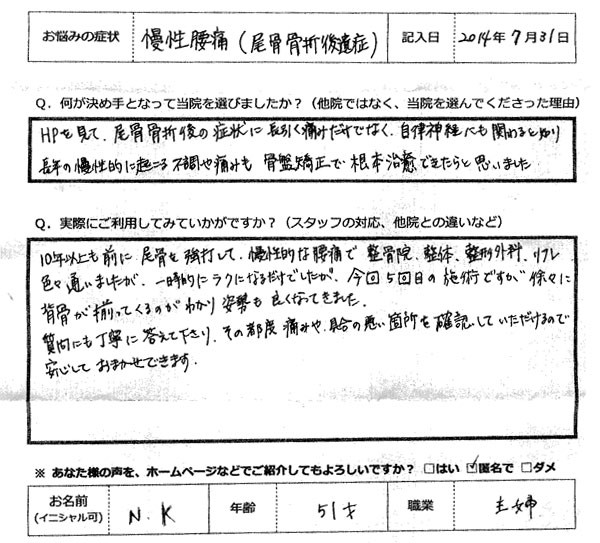 お悩みの症状 慢性腰痛(尾骨骨折後遺症) 記入日 2014年7月31日
Q．何が決め手となって当院を選びましたか？（他院ではなく、当院を選んでくださった理由）
HPを見て、尾骨骨折後の症状に長引く痛みだけでなく、自律神経にも関わると知り
長年の慢性的に起こる不調や痛みも 骨盤矯正で根本治癒できたらと思いました
Q．実際にご利用してみていかがですか？（スタッフの対応、他院との違いなど）
10年以上も前に尾骨を強打して、慢性的な腰痛で整骨院、整体、整形外科、リフレ
色々通いましたが、一時的にラクになるだけでしたが、今回5回目の施術ですが徐々に
背骨が揃ってくるのがわかり姿勢も良くなってきました。
質問にも丁寧に答えて下さり、その都度痛みや具合の悪い箇所を確認していただけるので
安心しておまかせできます。
※ あなた様の声を、ホームページなどでご紹介してもよろしいですか？ □はい ☑匿名で □ダメ
お名前 N.K 年齢 51才 職業 主婦
(イニシャル可)